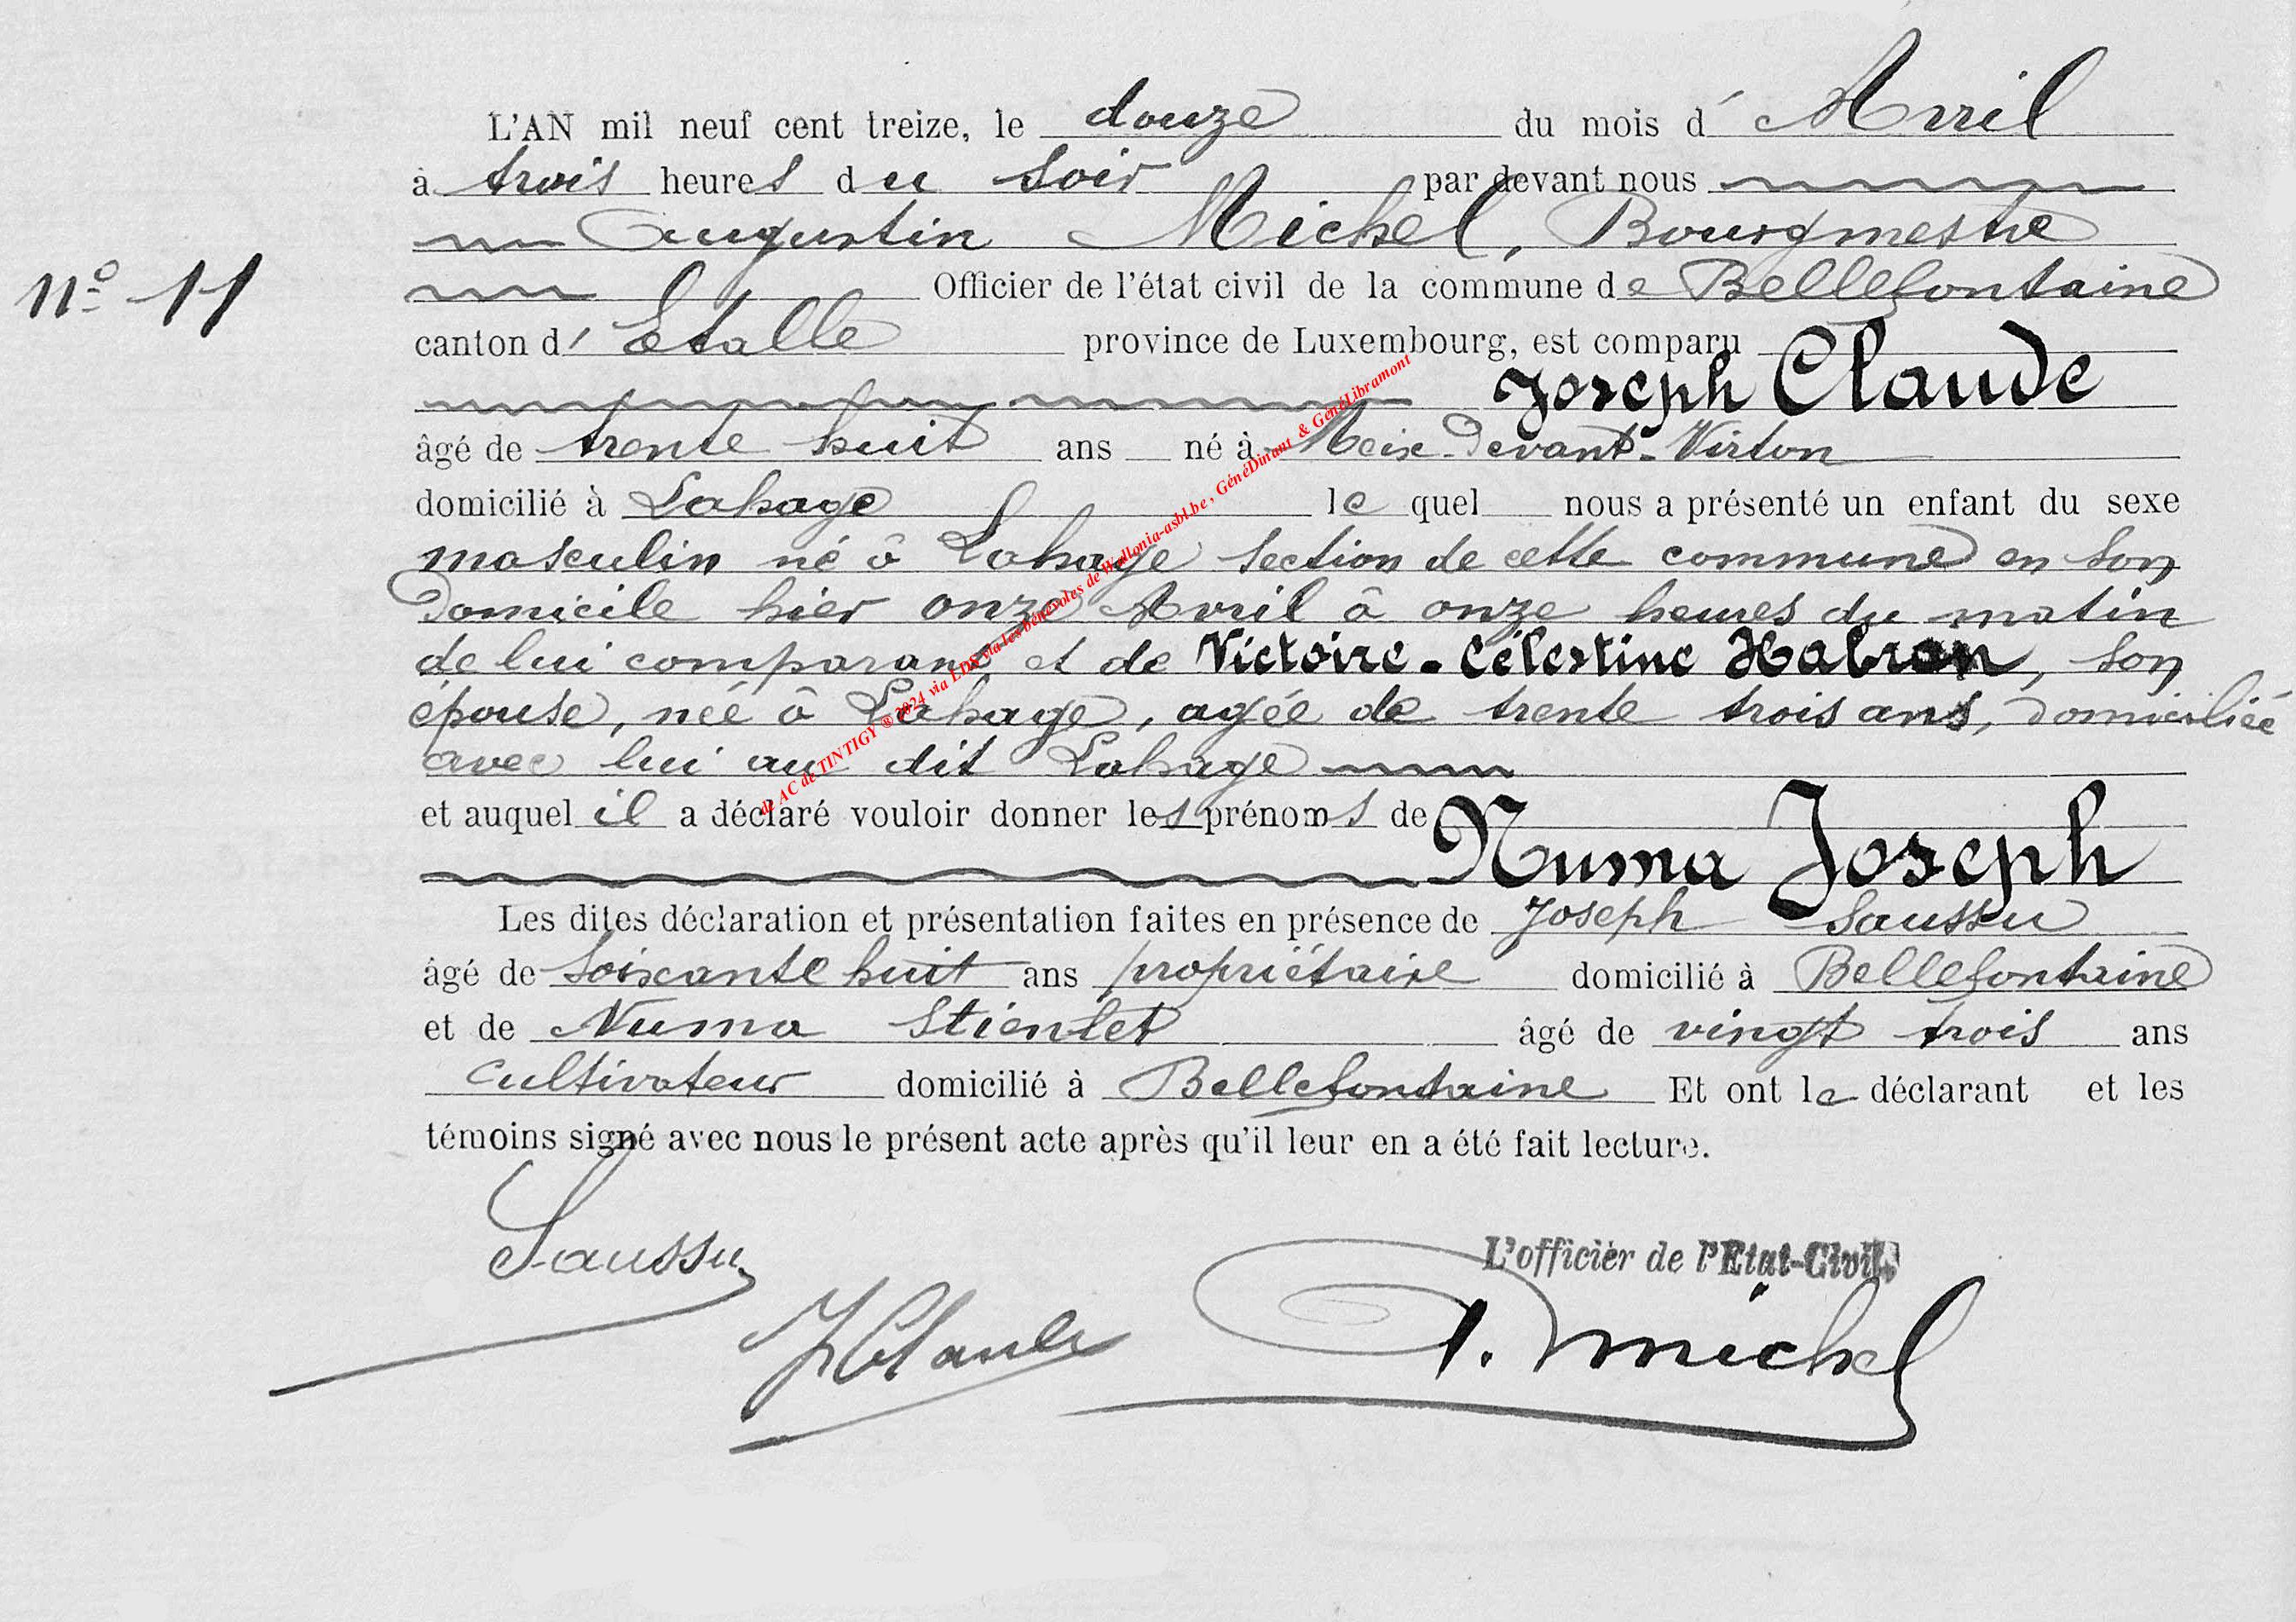 L'AN mil neuf cent treize, le douze du mois d'Avril
à trois heures du soir par devant nous
Augustin Michel, Bourgmestre
n° 11
Officier de l'état civil de la commune de Bellefontaine
canton d'Etalle province de Luxembourg, est comparu
Joseph Claude
âgé de trente huit ans né à Meix-Devant-Virton
domicilié à Lahage lequel nous a présenté un enfant du sexe
masculin né à Lahage section de cette commune en son
domicile hier onze Avril à onze heures du matin
de lui comparant et de Victoire-Célestine Habran, son
épouse, née à Lahage, agée de trente trois ans, domiciliée
avec lui au dit Lahage
et auquel il a déclaré vouloir donner les prénoms de
Numa Joseph
Les dites déclaration et présentation faites en présence de Joseph Saussu
âgé de soixante huit ans propriétaire domicilié à Bellefontaine
et de Numa Stiénlet âgé de vingt trois ans
cultivateur domicilié à Bellefontaine Et ont le déclarant et les
témoins signé avec nous le présent acte après qu'il leur en a été fait lecture.
Saussu
L'officier de l'Etat-Civil,
J Claude
A. Michel
AC de TINTIGY ® 2024 via LDS via les bénévoles de Wallonia-asbl.be, GénéDinant & GénéLibramont